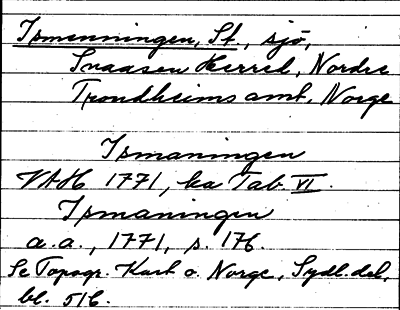 Ismenningen, St., sjö,
Snaasen Herred, Nordre
Trondheims amt, Norge
Ismaningen
VAH 1771, ka Tab. VI.
Ismaningen
a.a., 1771, s. 176.
Se Topogr. Kart o. Norge, Sydl. del,
bl. 51b.